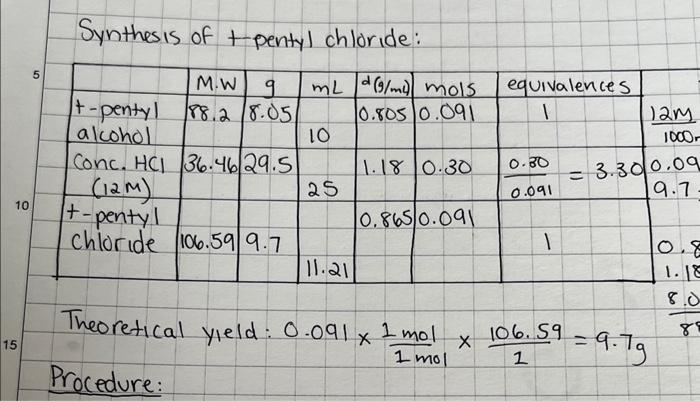 Synthesis of t-pentyl chloride:
5
M.W g mL d(g/mL) mols equivalences
t-pentyl 88.2 8.05 0.805 0.091 1 12M
alcohol 10 1000
Conc. HCl 36.46 29.5 1.18 0.30 0.30/0.091 = 3.30 0.09
(12M) 25 9.7
10
t-pentyl 0.865 0.091
chloride 106.59 9.7 1 0.8
11.21 1.18
8.0
Theoretical yield: 0.091 x 1 mol/1 mol x 106.59/1 = 9.7g
15
Procedure: